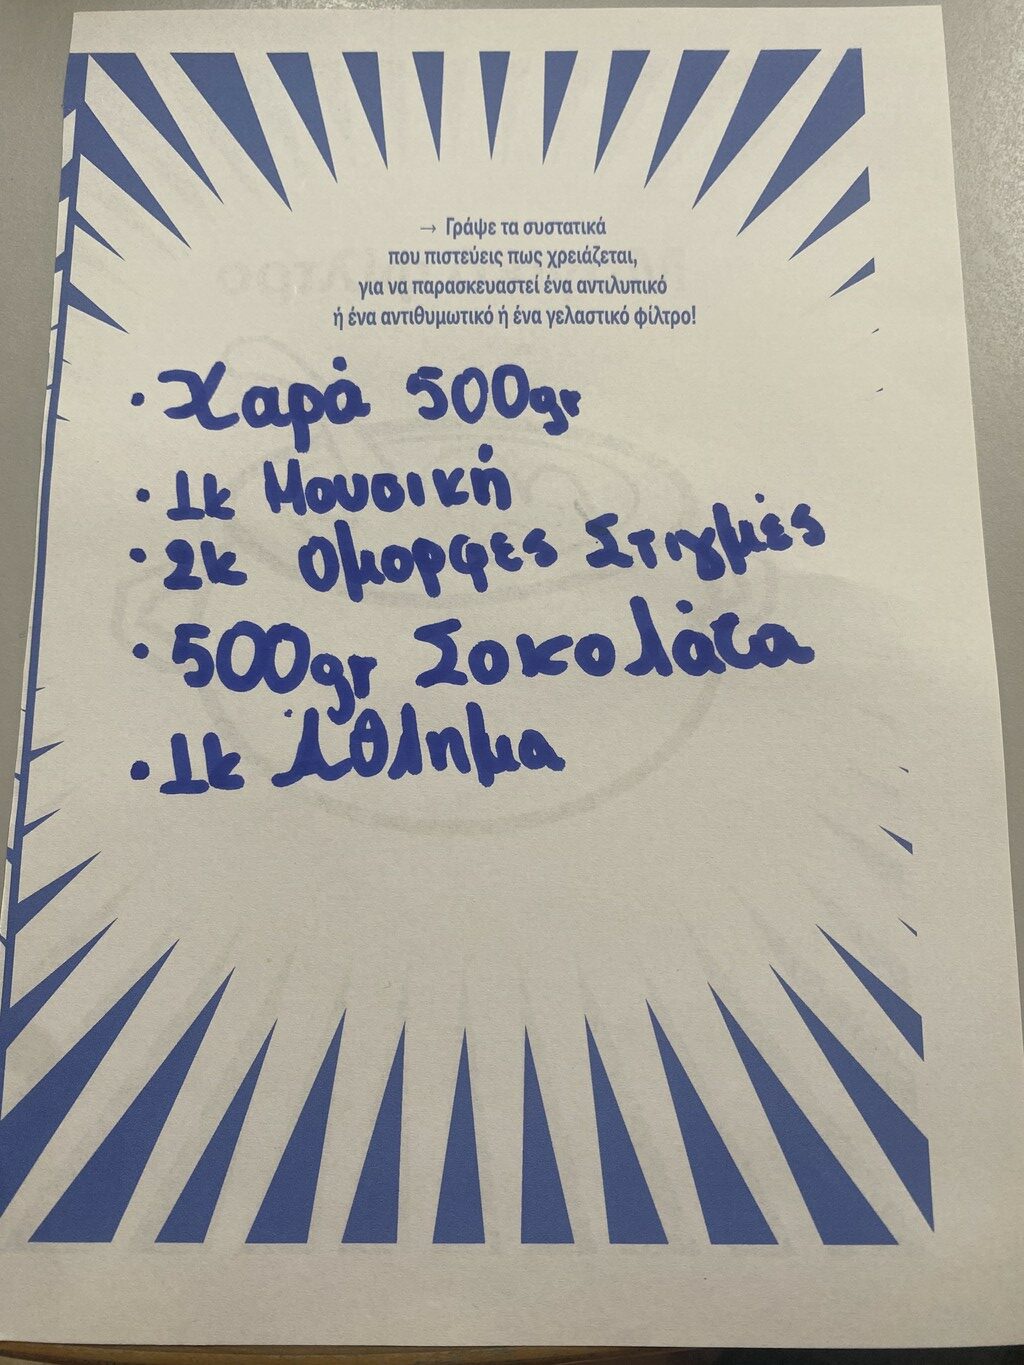 → Γράψε τα συστατικά
που πιστεύεις πως χρειάζεται,
για να παρασκευαστεί ένα αντιλυπικό
ή ένα αντιθυμωτικό ή ένα γελαστικό φίλτρο!
• Χαρά 500gr
• 1k Μουσική
• 2k Ομορφες Στιγμές
• 500gr Σοκολάτα
• 1k Άθλημα